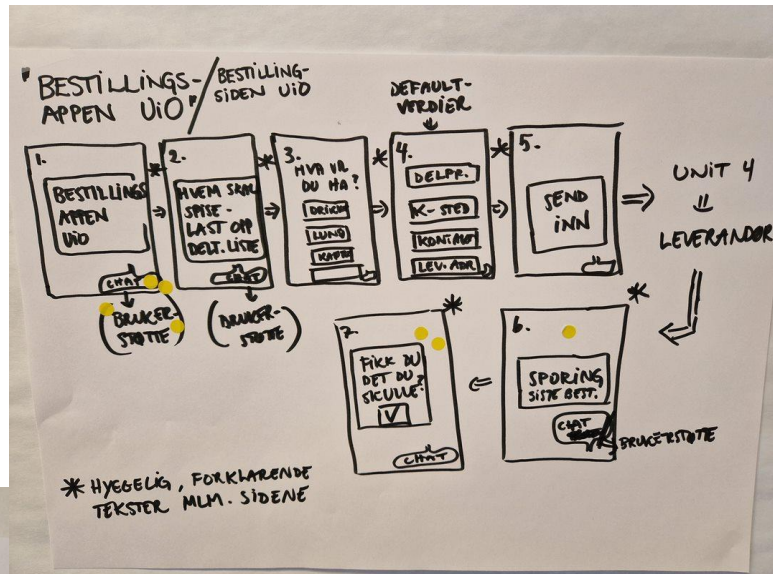 "BESTILLINGS-
APPEN UiO"
BESTILLING-
SiDEN UiO
DEFAULT-
VERDIER
1.
BESTILLINGS
APPEN
UiO
CHAT
(BRUKER-
STØTTE)
*
2.
HVEM SKAL
SPISE -
LAST OPP
DELT. LISTE
CHAT
(BRUKER-
STØTTE)
*
3.
HVA VIL
DU HA?
DRIKKE
LUNSJ
KAFFE
*
4.
DELPR.
K-STED
KONTAKT
LEV. ADR
*
5.
SEND
iNN
UNIT 4
LEVERANDØR
*
6.
SPORiNG
SISTE BEST.
CHAT
BRUKERSTØTTE
*
7.
FIKK DU
DET DU
SKULLE?
CHAT
* HYGGELiG, FORKLARENDE
TEKSTER MLM. SiDENE